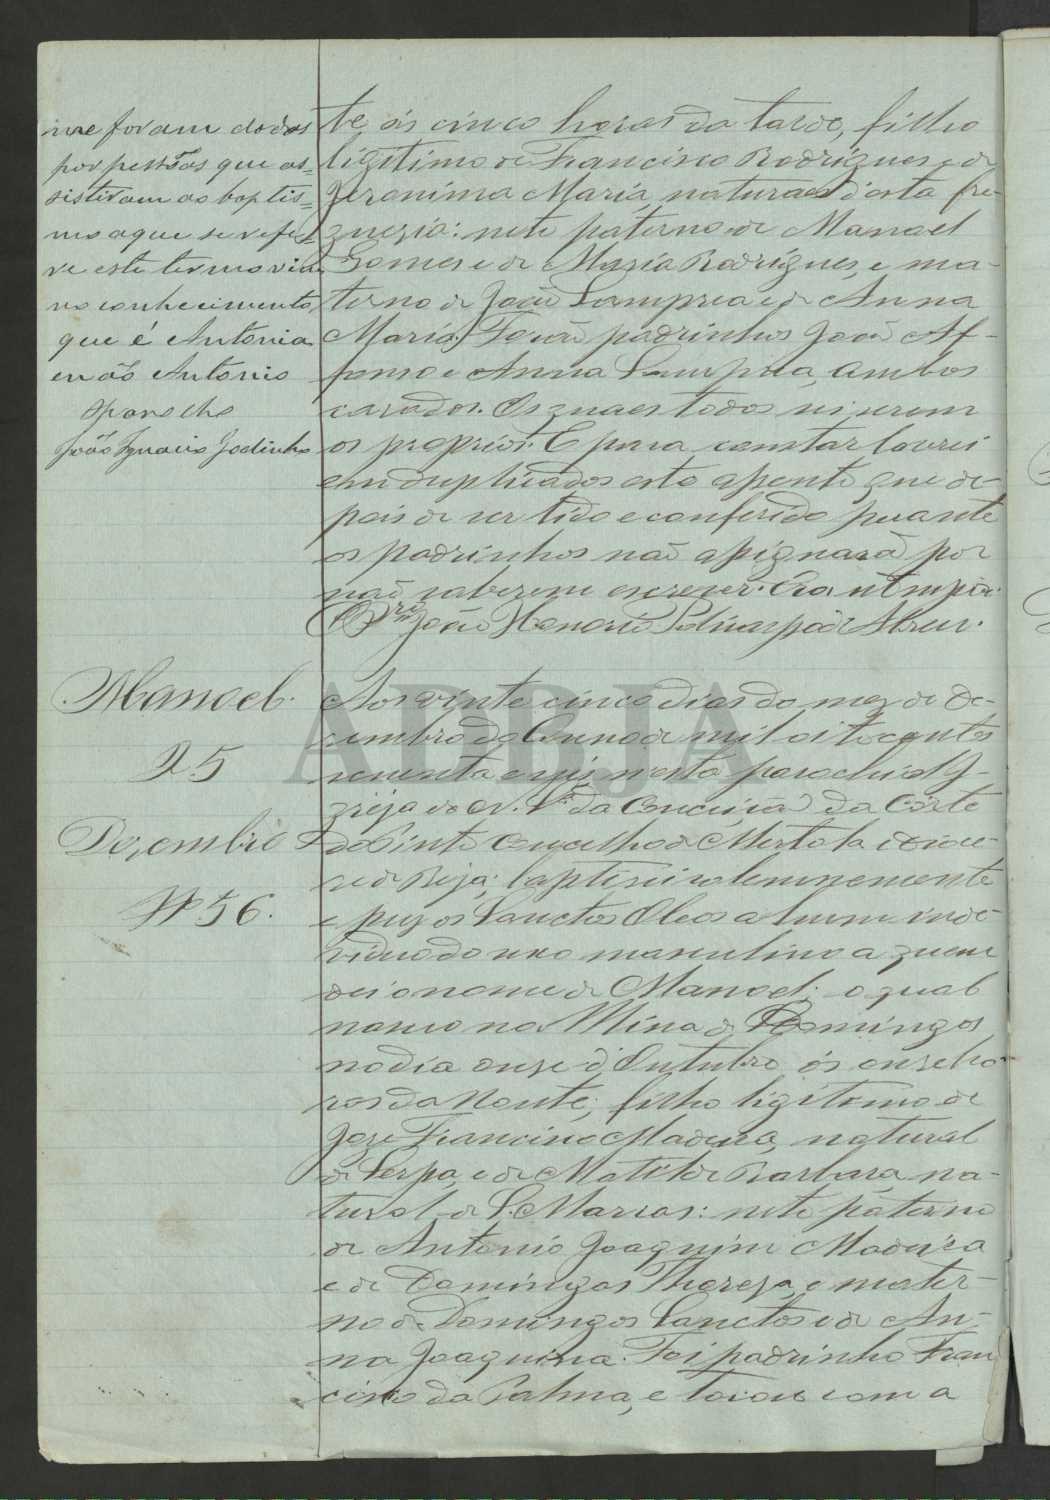 me foram dados
por pessôas que as=
sistiram ao baptis=
mo a que se refe=
re este termo vim
no conhecimento,
que é Antonia
e não Antonio
O parocho
João Ignacio Godinho
te, ás cinco horas da tarde, filho
ligitimo de Francisco Rodrigues e de
Jeronima Maria, naturaes d'esta fre-
guezia: neto paterno de Manoel
Gomes e de Maria Rodrigues, e ma-
terno de João Lamprea e de Anna
Maria. Forão padrinhos João Af-
fonso e Anna Lamprea, ambos
casados. Os quaes todos sei serem
os proprios. E para constar lavrei
em duplicados este assento que de-
pois de ser lido e conferido perante
os padrinhos não assignarão por
não saberem escrever. Era ut supra.
O Pre João Honorio Policarpio Abreu.
Manoel.
25
Dezembro
Nº 56.
Aos vinte cinco dias do mez de De-
zembro do anno de mil oitocentos
secenta e seis n'esta parochial I-
greja de N. Sª da Conceição da Côrte
do Pinto Concelho de Mertola e Dioce-
se de Beja; baptisei solemnemente
e puz os Sanctos Oleos a hum indi-
viduo do sexo masculino a quem
dei o nome de Manoel; o qual
nasceo na Mina de S. Domingos
no dia onze d'Outubro ás onze ho-
ras da noute; filho ligitimo de
Jose Francisco Madeira, natural
de Serpa, e de Matilde Barbara na-
tural de S. Marcos: neto paterno
de Antonio Joaquim Madeira
e de Domingas Thereza, e mater-
no de Domingos Sanctos e de An-
na Joaquina. Foi padrinho Fran
cisco da Palma, e tocou com a
ADBJA